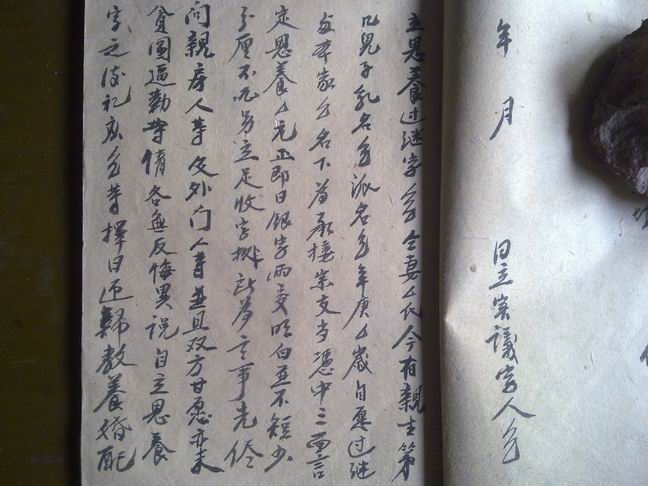 年 月 日立議字人厶
立恩養过继字厶仝妻厶氏今有親生第
几兒子乳名厶派名厶年庚厶歲自愿过继
与本家厶名下為承接宗支当憑中三面言
定恩養厶元正即日銀字両交明白並不短少
分厘不必另立足收字據此為言事先侭
问親房人等及外门人等並且双方甘愿亦未
貧图逼勒等情各無反悔異説自立恩養
字之後厶等擇日迎歸教養婚配